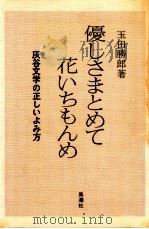 玉田勝郎著
優しさまとめて
花いちもんめ
灰谷文学の正しいよみ方
風濤社